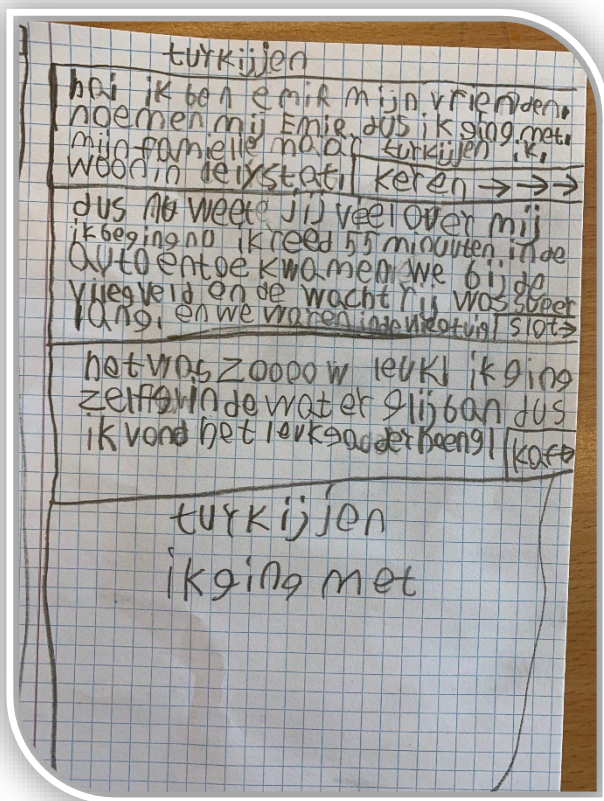 turkijjen
hai ik ben emir mijn vrienden,
noemen mij Emir. dus ik ging met,
mijn famielle naar turkijjen ik,
woonin leiystat! keren → → →
dus nu weete jij veel over mij
ik beging nu ik reed 55 minuuten in de
auto en toe kwamen we bij de
vliegveld en de wacht rij was superr
lang, en we waren in de vliegtuig! slot→
het was zoooow leuk! ik ging
zelfs in de water glijban dus
ik vond het leuk gaderheeng! kaft→
turkijjen
ik ging met